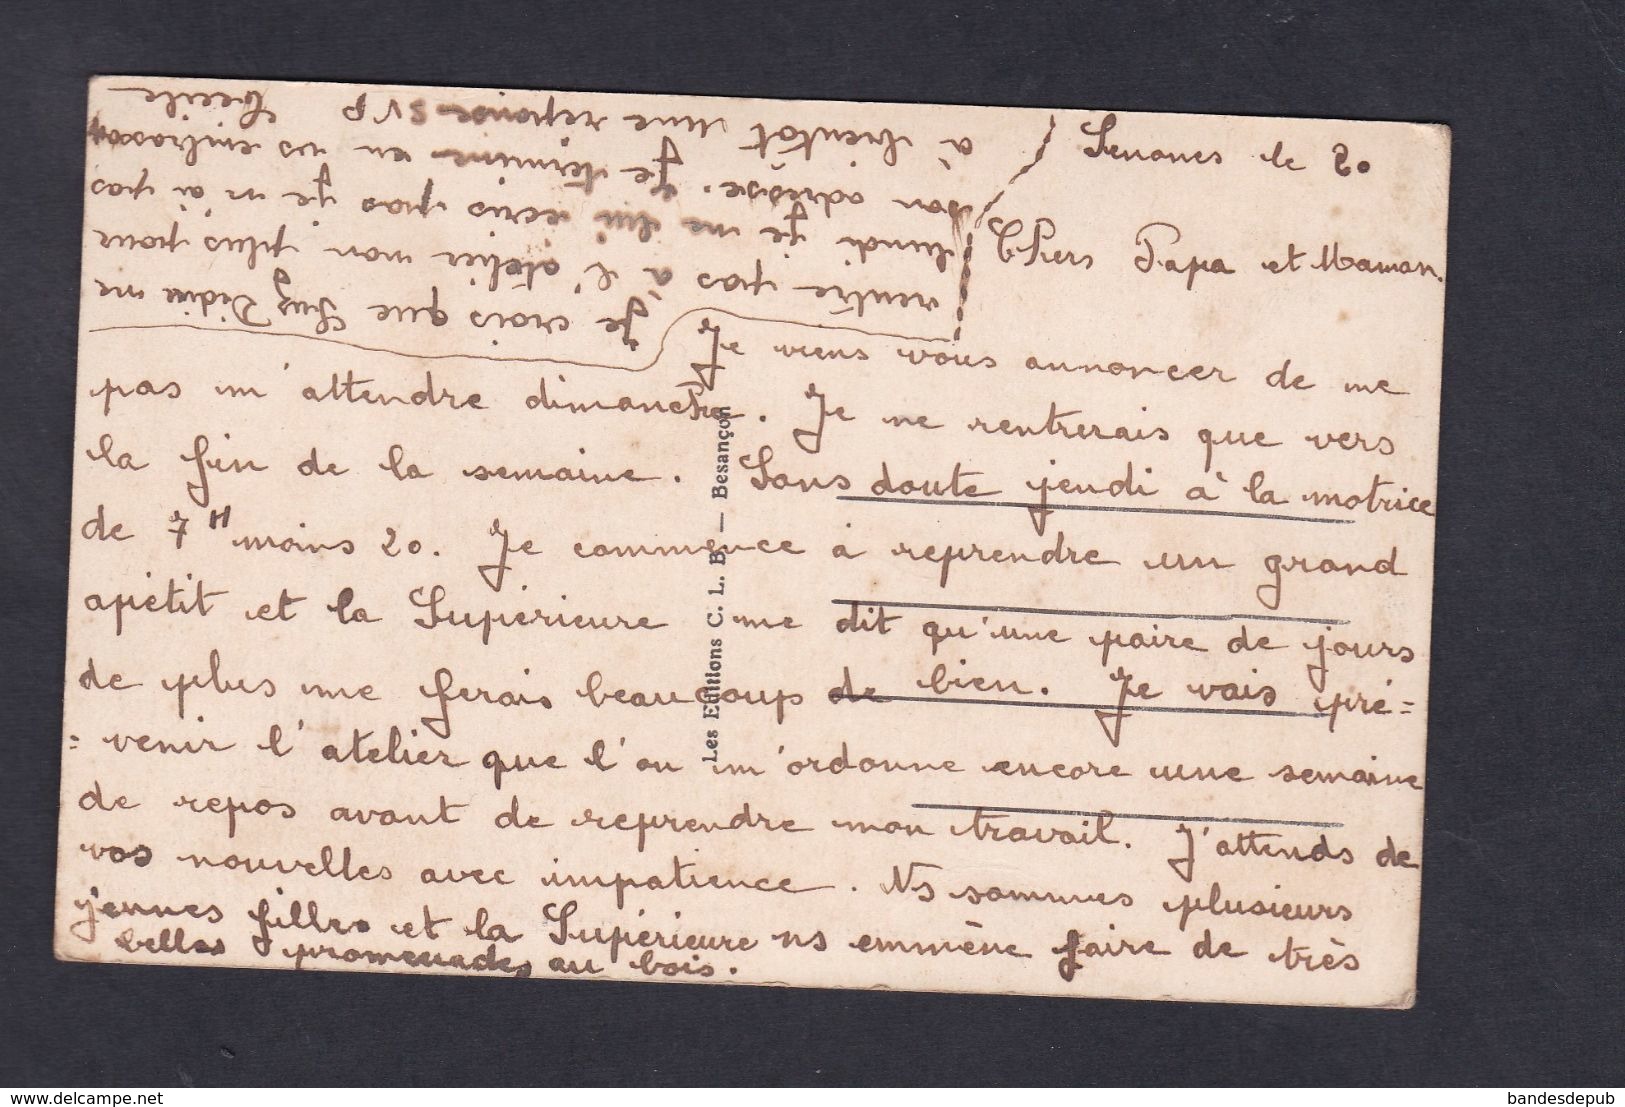 Senones le 20
Chers Papa et Maman.
Je viens vous annoncer de me
pas m'attendre dimanche. Je ne rentrerais que vers
la fin de la semaine. Sans doute jeudi à la motrice
de 7H moins 20. Je commence à reprendre un grand
apétit et la Supérieure me dit qu'une paire de jours
de plus me ferais beaucoup de bien. Je vais pré=
=venir l'atelier que l'on m'ordonne encore une semaine
de repos avant de reprendre mon travail. J'attends de
vos nouvelles avec impatience. Ns sommes plusieurs
jeunes filles et la Supérieure ns emmène faire de très
belles promenades au bois.
Je crois que Suz Didier ne
rentre pas à l'atelier non plus pour
lundi je ne lui écris pas je n'ai pas
son adresse. Je termine en vs embrassant
à bientôt une réponse SVP Cécile
Les Editions C. L. B. — Besançon
bandesdepub